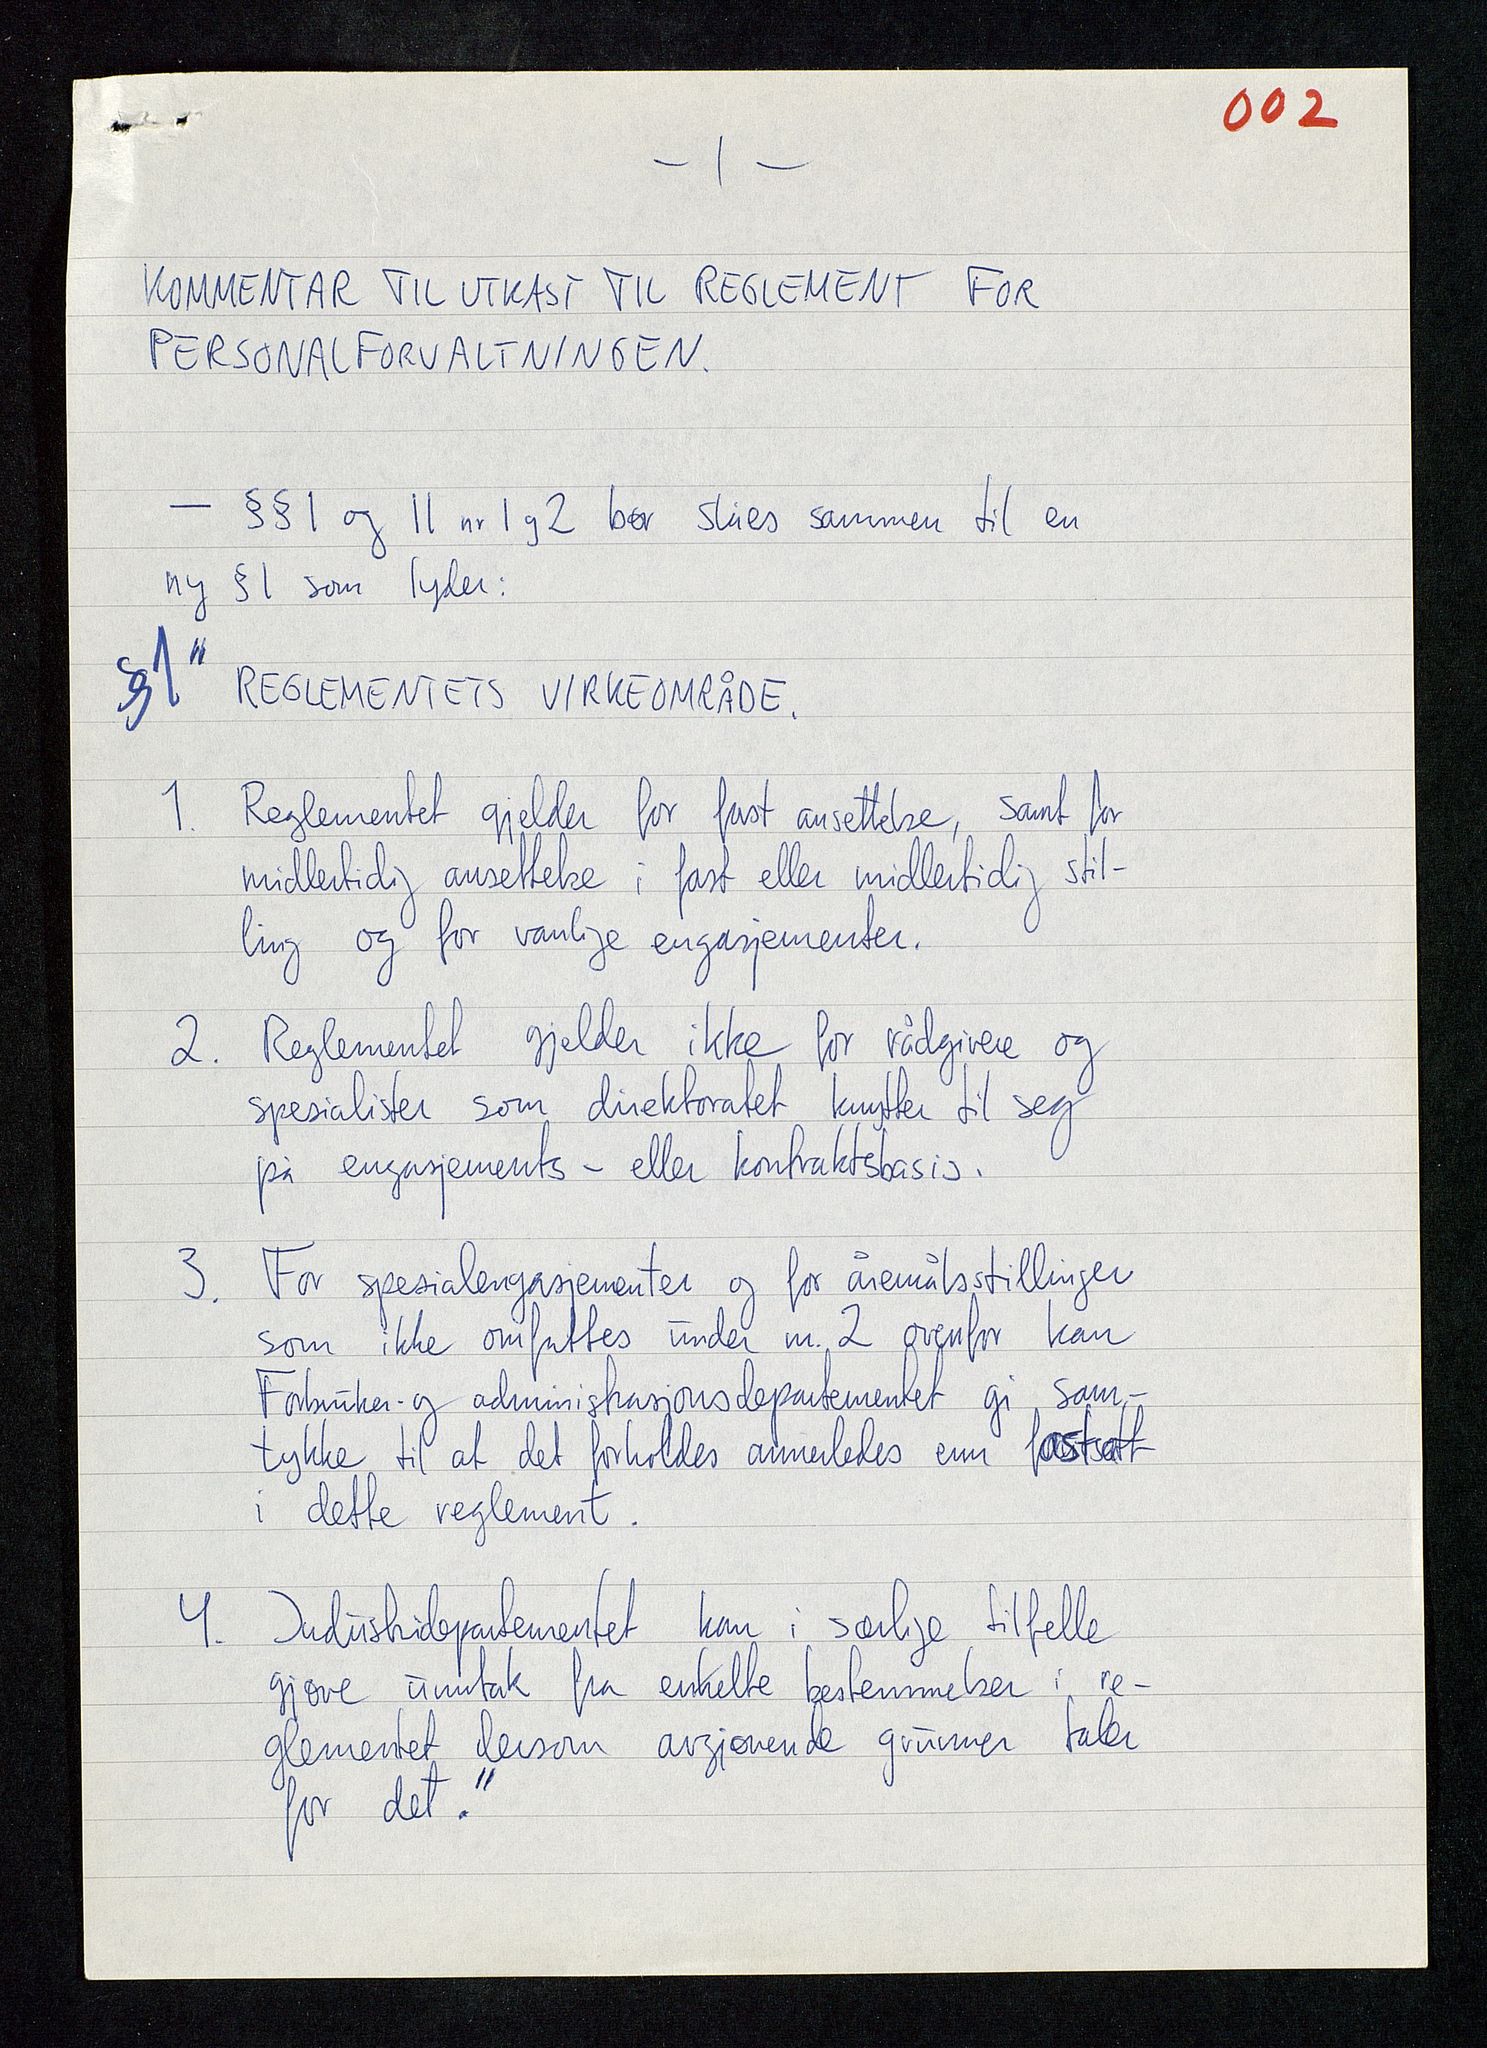 002
- 1 -
KOMMENTAR TIL UTKAST TIL REGLEMENT FOR
PERSONALFORVALTNINGEN.
- §§ 1 og 11 nr 1 g 2 bør slåes sammen til en
ny § 1 som lyder:
§1 " REGLEMENTETS VIRKEOMRÅDE.
1. Reglementet gjelder for fast ansettelse, samt for
midlertidig ansettelse i fast eller midlertidig stil-
ling og for vanlige engasjementer.
2. Reglementet gjelder ikke for rådgivere og
spesialister som direktoratet knytter til seg
på engasjements- eller kontraktsbasis.
3. For spesialengasjementer og for åremålsstillinger
som ikke omfattes under nr. 2 ovenfor kan
Forbruker- og administrasjonsdepartementet gi sam-
tykke til at det forholdes annerledes enn fastsatt
i dette reglement.
4. Industridepartementet kan i særlige tilfelle
gjøre unntak fra enkelte bestemmelser i re-
glementet dersom avgjørende grunner taler
for det."